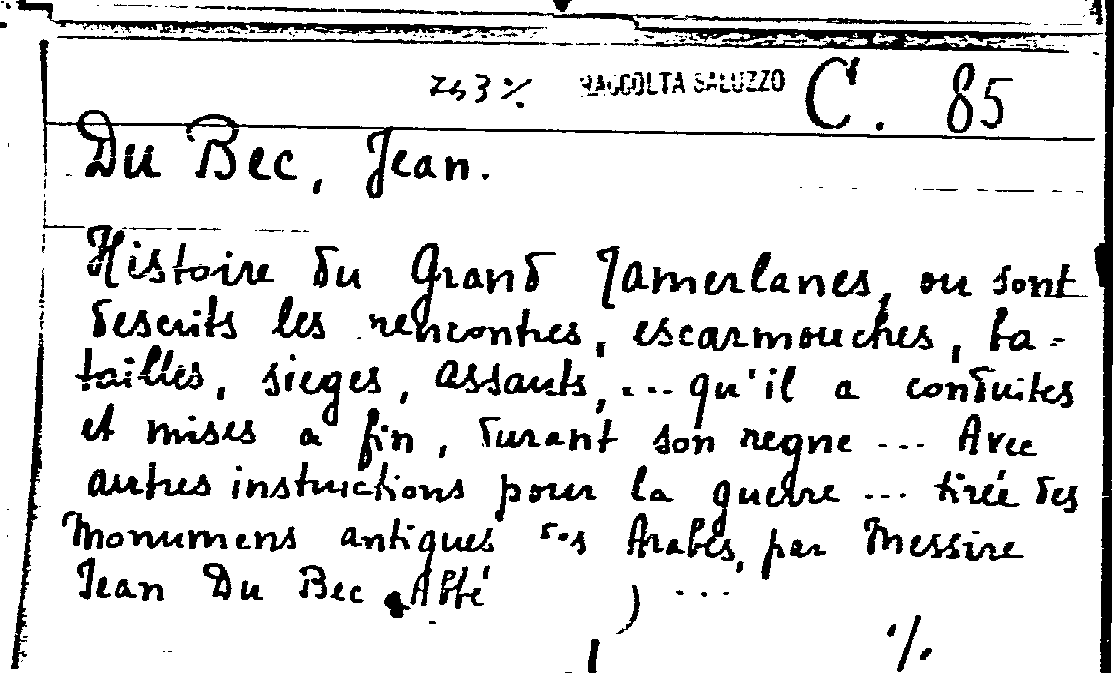 RACCOLTA SALUZZO C. 85
Du Bec, Jean.
Histoire du Grand Tamerlanes, ou sont
descrits les rencontres, escarmouches, ba-
tailles, sieges, assauts, ... qu'il a conduites
et mises a fin, durant son regne ... Avec
autres instructions pour la guerre ... tirée des
Monumens antiques des Arabes, par Messire
Jean Du Bec Abbé ) ...
./.